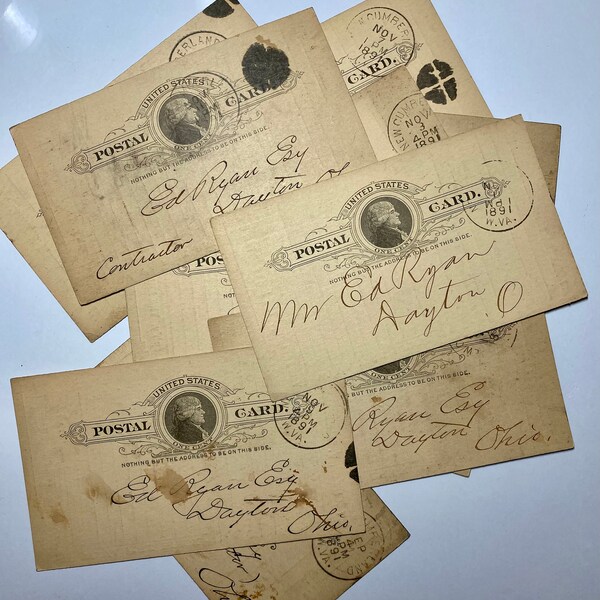 UNITED STATES
POSTAL CARD.
ONE CENT
NOTHING BUT THE ADDRESS TO BE ON THIS SIDE.
Ed Ryan Esq
Dayton
Contractor
NEW CUMBERL
NOV
CARD.
NEW CUMBE
NOV
3
4 PM
1891
UNITED STATES
POSTAL CARD.
ONE CENT
NOTHING BUT THE ADDRESS TO BE ON THIS SIDE.
1891
W.VA.
Mr Ed Ryan
Dayton O
POS
NOTH
UNITED STATES
POSTAL CARD.
ONE CENT
NOTHING BUT THE ADDRESS TO BE ON THIS SIDE.
NOV
9
4 PM
1891
W.VA.
Ed Ryan Esq
Dayton
Ohio.
ONE CENT
BUT THE ADDRESS TO BE ON THIS SIDE.
Ryan Esq
Dayton Ohio.
PM
1891
W.VA.